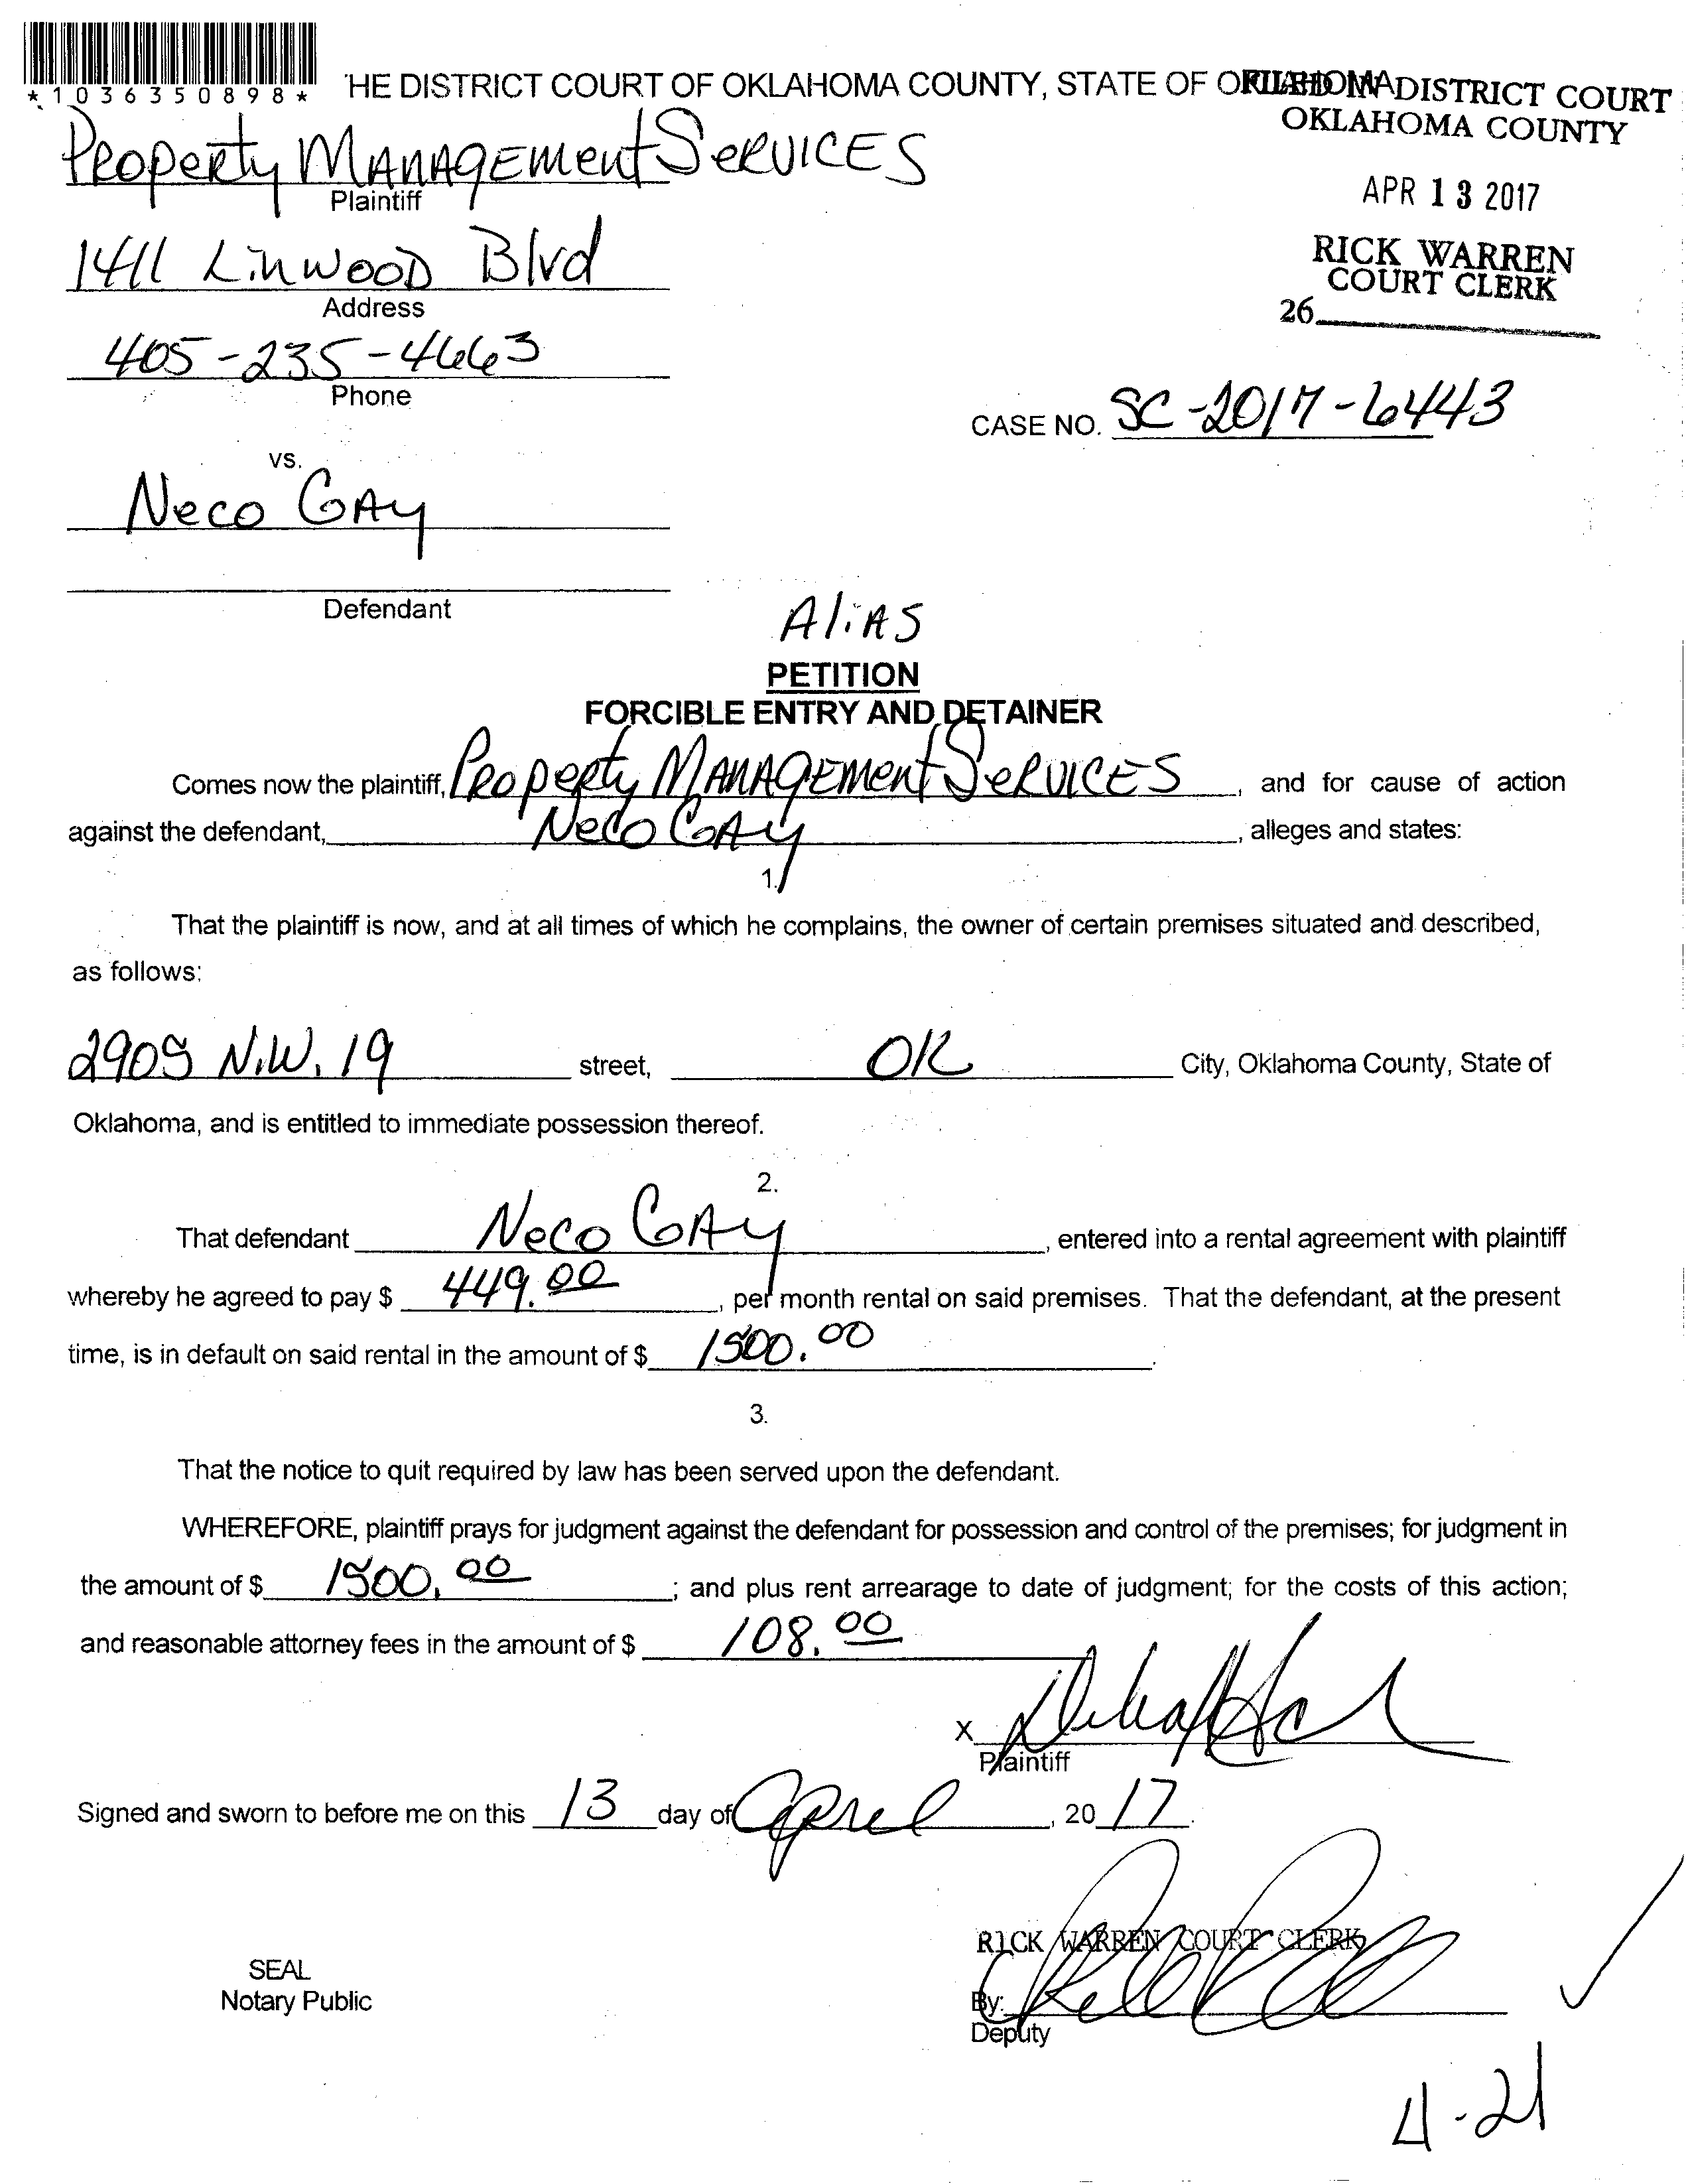 *1036350898*
'HE DISTRICT COURT OF OKLAHOMA COUNTY, STATE OF OKLAHOMA
FILED IN DISTRICT COURT
OKLAHOMA COUNTY
Property Management Services
Plaintiff
APR 13 2017
1411 Linwood Blvd
Address
RICK WARREN
COURT CLERK
26
405-235-4663
Phone
CASE NO. SC-2017-6443
vs.
Neco Gay
Defendant
Alias
PETITION
FORCIBLE ENTRY AND DETAINER
Comes now the plaintiff, Property Management Services, and for cause of action
against the defendant, Neco Gay, alleges and states:
1.
That the plaintiff is now, and at all times of which he complains, the owner of certain premises situated and described,
as follows:
2909 N.W. 19 street, OK City, Oklahoma County, State of
Oklahoma, and is entitled to immediate possession thereof.
2.
That defendant Neco Gay, entered into a rental agreement with plaintiff
whereby he agreed to pay $ 449.00, per month rental on said premises. That the defendant, at the present
time, is in default on said rental in the amount of $ 1500.00.
3.
That the notice to quit required by law has been served upon the defendant.
WHEREFORE, plaintiff prays for judgment against the defendant for possession and control of the premises; for judgment in
the amount of $ 1500.00; and plus rent arrearage to date of judgment; for the costs of this action;
and reasonable attorney fees in the amount of $ 108.00
X
Plaintiff
Signed and sworn to before me on this 13 day of April, 2017.
RICK WARREN COURT CLERK
SEAL
Notary Public
By:
Deputy
4-21